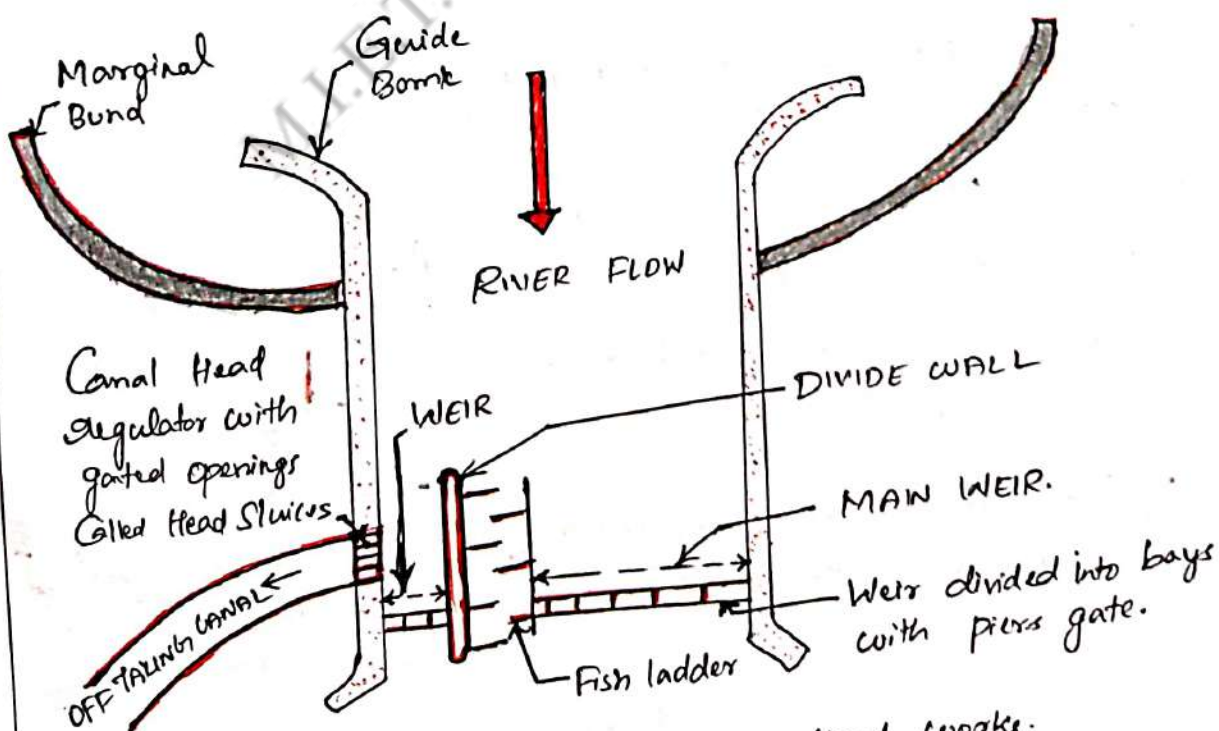 M.I.E.T.
Marginal
Bund
Guide
Bank
RIVER FLOW
Canal Head
regulator with
gated openings
Called Head Sluices
WEIR
DIVIDE WALL
MAIN WEIR.
Weir divided into bays
with piers gate.
Fish ladder
OFF TAKING CANAL
works.